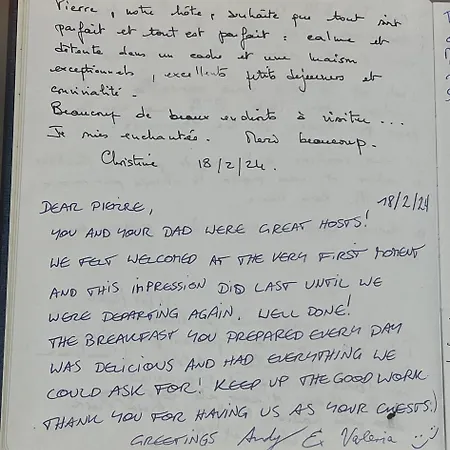 Pierre, notre hôte, souhaite que tout soit
parfait et tout est parfait : calme et
détente dans un cadre et une maison
exceptionnels, excellents petits déjeuners et
convivialité.
Beaucoup de beaux endroits à visiter...
Je suis enchantée. Merci beaucoup.
Christine 18/2/24.
18/2/24
DEAR PIERRE,
YOU AND YOUR DAD WERE GREAT HOSTS!
WE FELT WELCOMED AT THE VERY FIRST MOMENT
AND THIS IMPRESSION DID LAST UNTIL WE
WERE DEPARTING AGAIN. WELL DONE!
THE BREAKFAST YOU PREPARED EVERY DAY
WAS DELICIOUS AND HAD EVERYTHING WE
COULD ASK FOR! KEEP UP THE GOOD WORK
THANK YOU FOR HAVING US AS YOUR GUESTS:)
GREETINGS Andy & Valeria :)